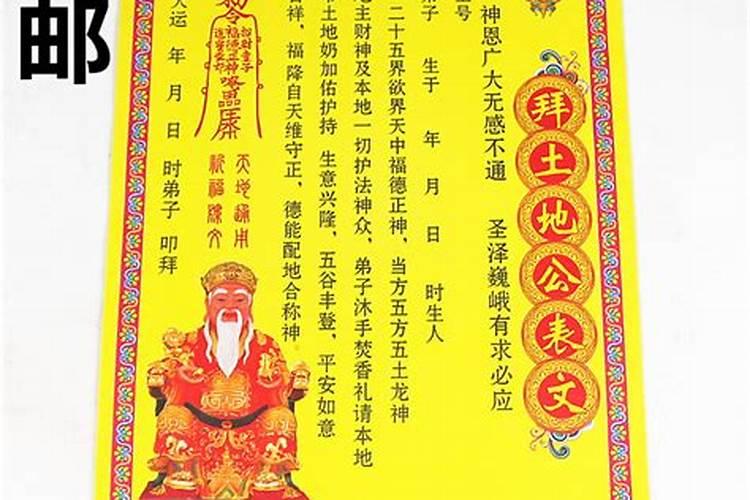 邮
拜土地公表文
神恩广大无感不通 圣泽巍峨有求必应
弟子 生于 年 月 日 时生人
二十五界欲界天中福德正神，当方五方五土龙神
地主财神及本地一切护法神众，弟子沐手焚香礼请本地
土地奶加佑护持 生意兴隆，五谷丰登，平安如意
吉祥，福降自天维守正，德能配地合称神。
大运 年 月 日 时弟子 叩拜